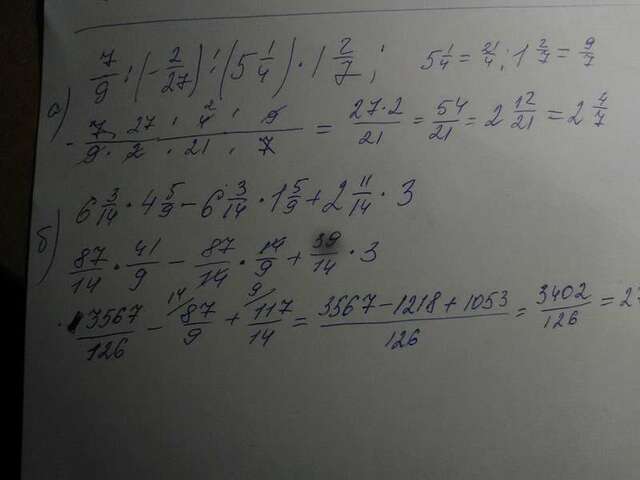 а) 7/9 : (-2/27) : (5 1/4) · 1 2/7 ; 5 1/4 = 21/4 ; 1 2/7 = 9/7
- 7 · 27 · 4 · 9 / 9 · 2 · 21 · 7 = 27·2/21 = 54/21 = 2 12/21 = 2 4/7
б) 6 3/14 · 4 5/9 - 6 3/14 · 1 5/9 + 2 11/14 · 3
87/14 · 41/9 - 87/14 · 14/9 + 39/14 · 3
3567/126 - 87/9 + 117/14 = 3567-1218+1053/126 = 3402/126 = 27